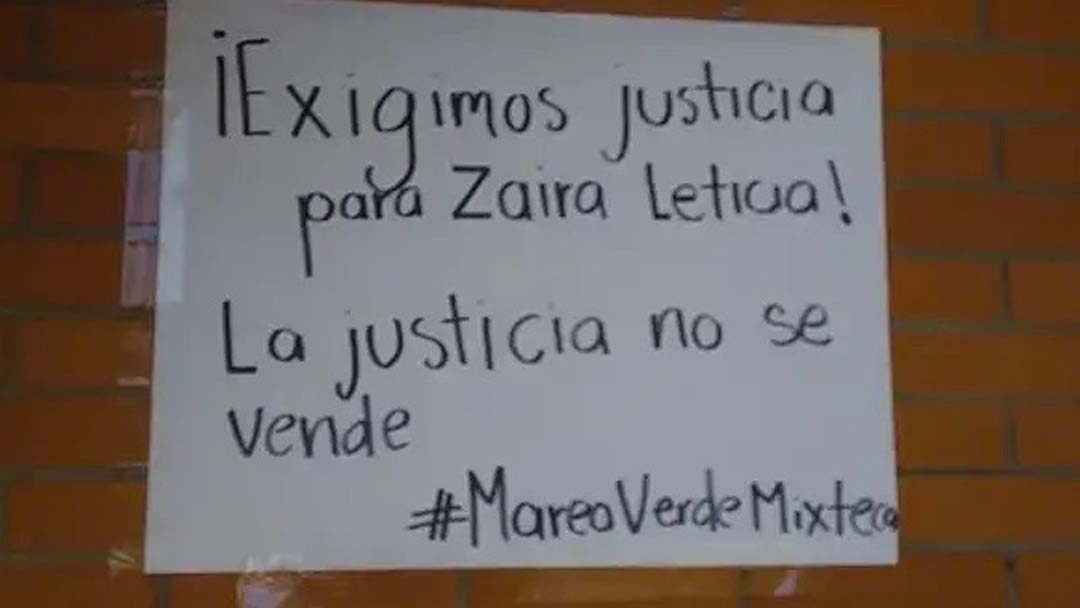 ¡Exigimos justicia
para Zaira Leticia!
La justicia no se
vende
#MareaVerdeMixteca